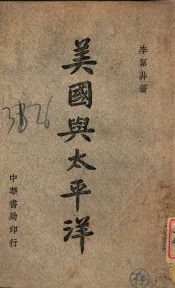 李絜非著
美國與太平洋
中華書局印行
3826